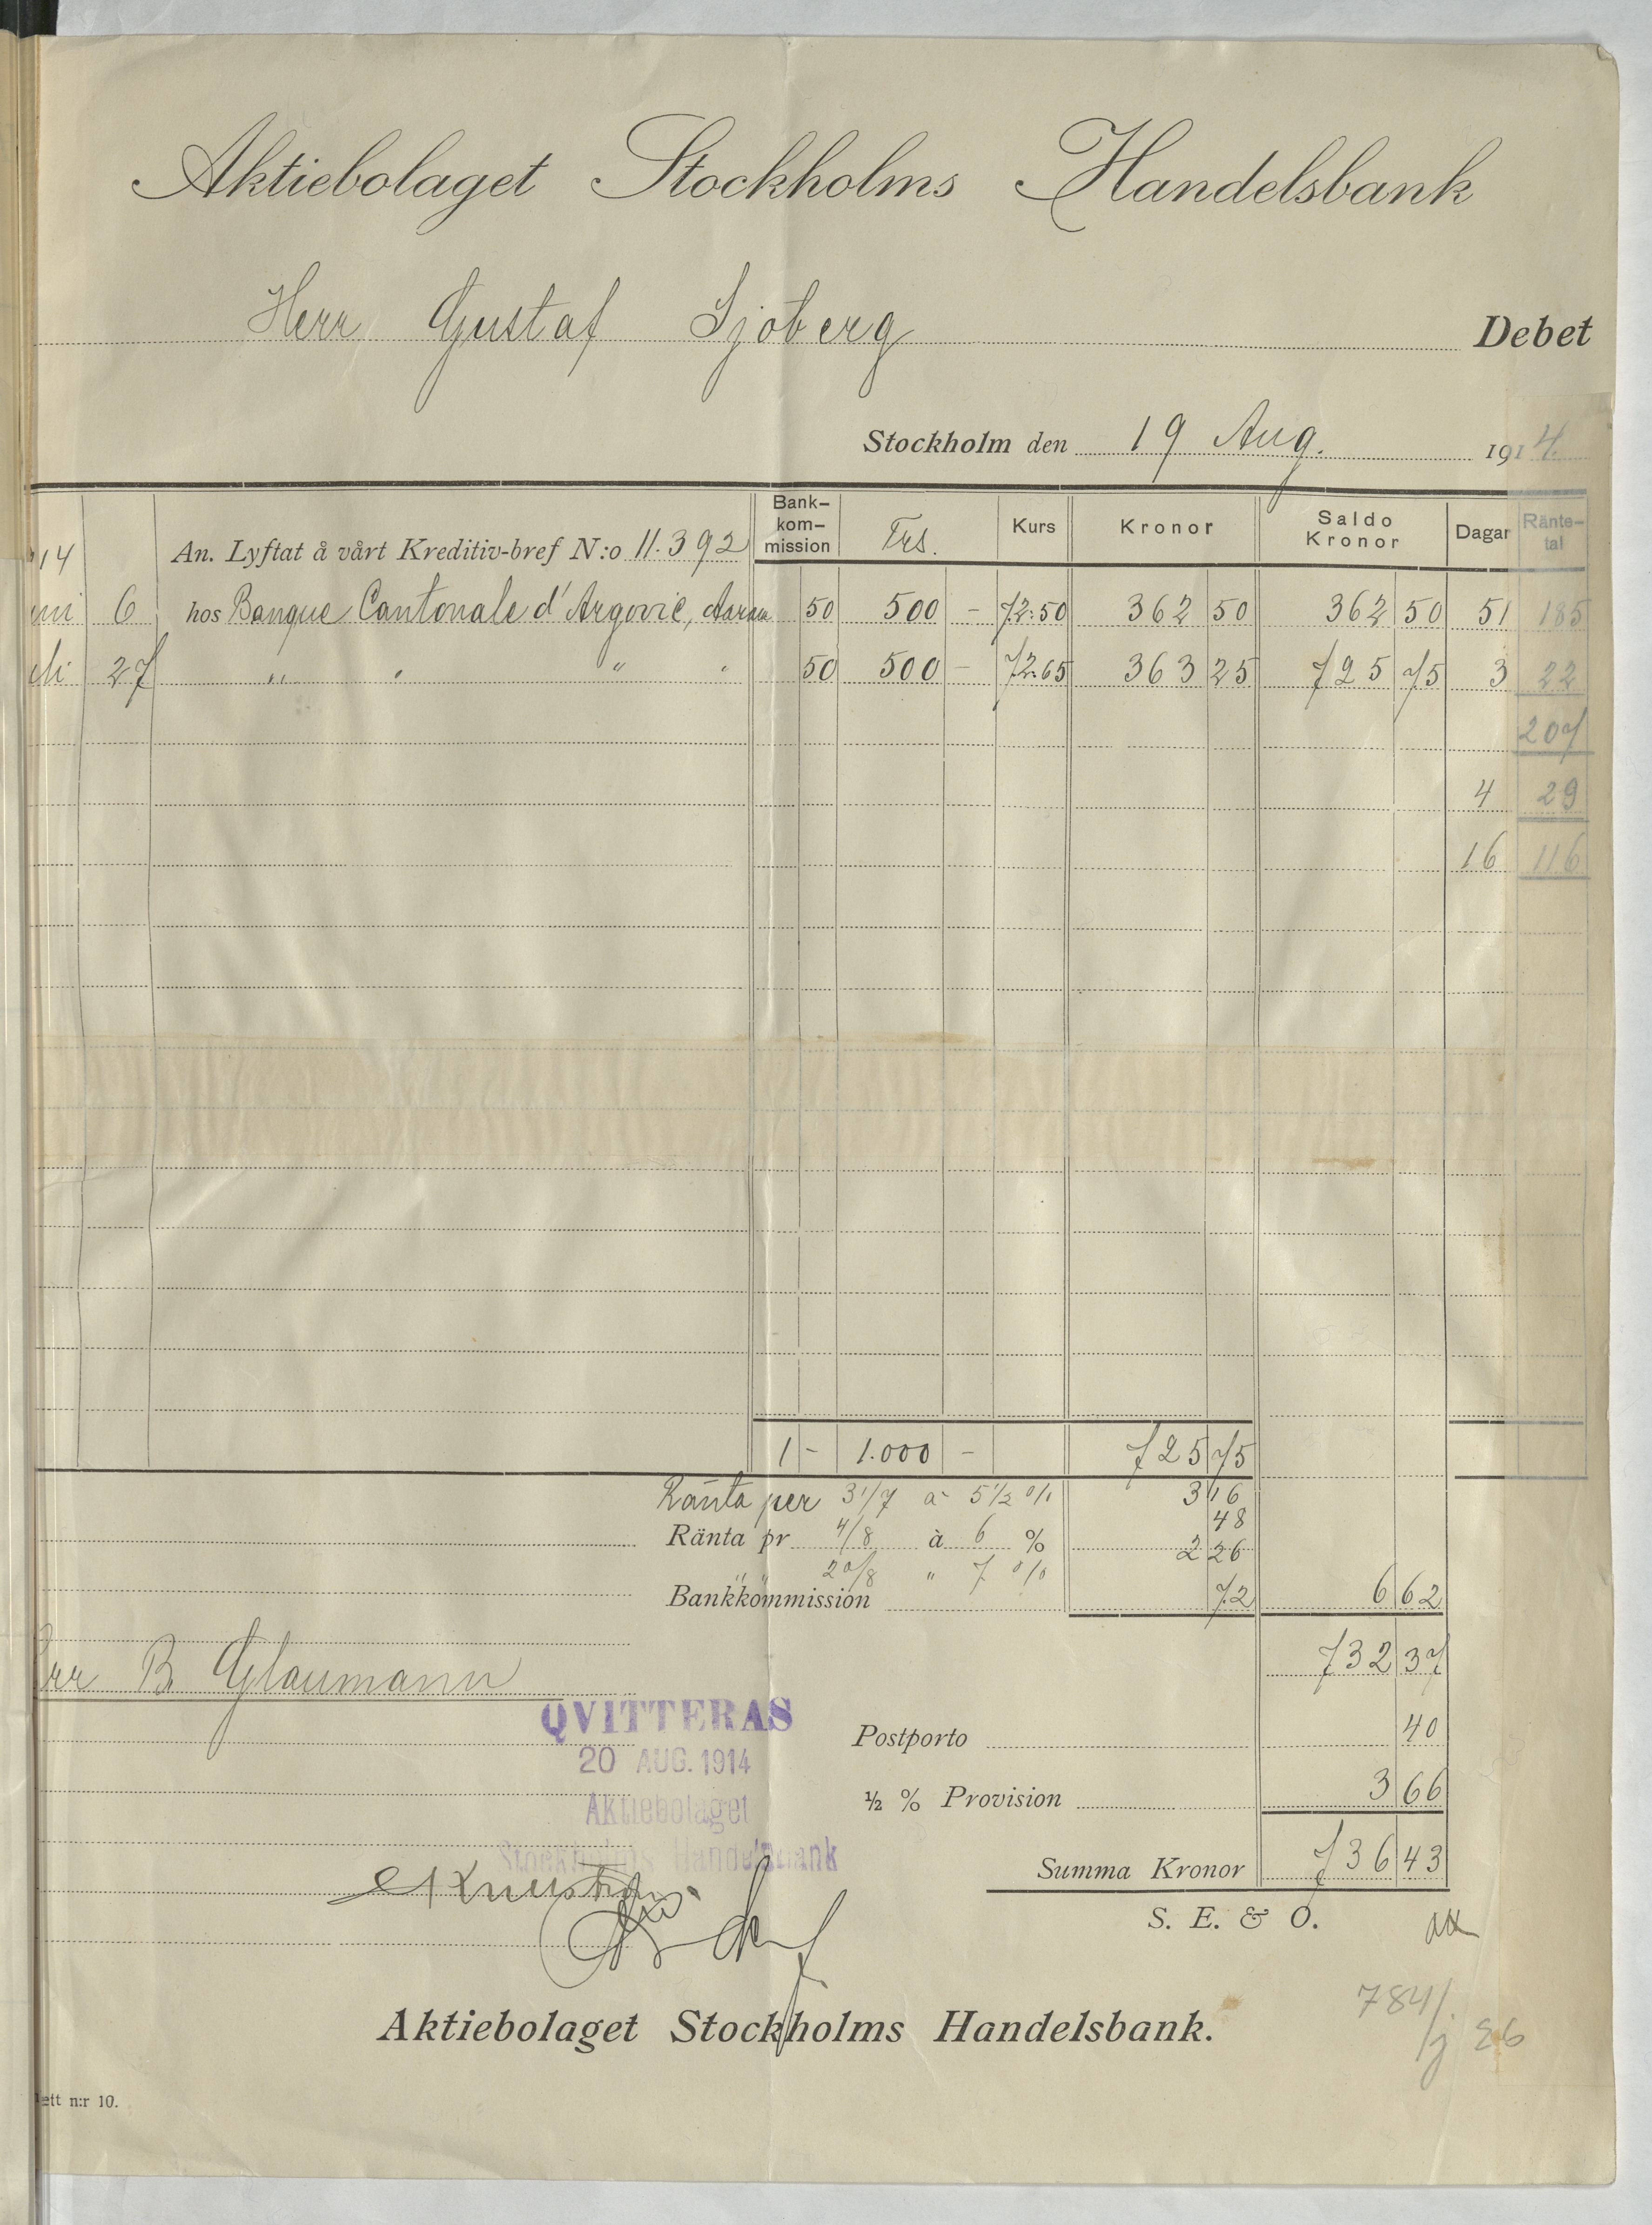 Aktiebolaget Stockholms Handelsbank
Herr Gustaf Sjöberg Debet
Stockholm den 19 Aug. 1914.
14 An. Lyftat å vårt Kreditiv-bref N:o 11.392 Bank-kom-mission Frs. Kurs Kronor Saldo Kronor Dagar Ränte-tal
6 hos Banque Cantonale d'Argovie, Aarau 50 500 - 72:50 362 50 362 50 51 185
27 " " " " 50 500 - 72:65 363 25 725 75 3 22
207
4 29
16 116
1 - 1.000 - 725 75
Ränta per 31/7 à 5 1/2 % 3 16
Ränta pr 4/8 à 6 % 48
" " 20/8 " 7 % 2 26
Bankkommission 72 6 62
732 37
B. Glaumann
QVITTERAS
20 AUG. 1914
Aktiebolaget
Stockholms Handelsbank
Postporto 40
½ % Provision 3 66
Summa Kronor 736 43
S. E. & O.
Aktiebolaget Stockholms Handelsbank.
784/.
ett n:r 10.